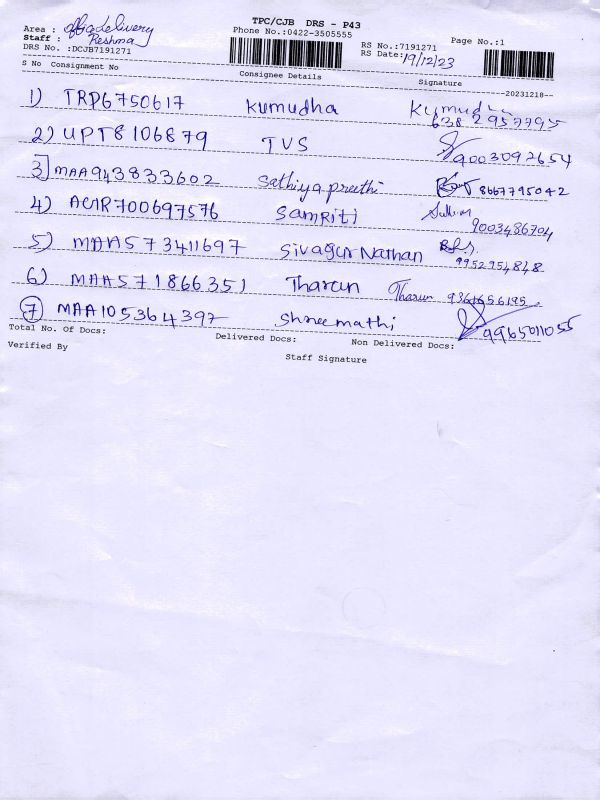 TPC/CJB DRS - P43
Area : office delivery Phone No.:0422-3505555
Staff : Reshma RS No.:7191271 Page No.:1
DRS No. :DCJB7191271 RS Date: 17/12/23
S No Consignment No Consignee Details Signature
--20231218--
1) TRP6750617 Kumudha Kumudha
638 2957795
2) UPT8106879 TVS 9003097654
3) MAA943833602 Sathiya preethi 8667795042
4) ACMR700697576 Samriti
9003486704
5) MAA573411697 Sivagur Nathan
9952954848
6) MAA571866351 Tharun Tharun 9361656195
7) MAA105364397 Shreemathi 9965011055
Total No. Of Docs: Delivered Docs: Non Delivered Docs:
Verified By Staff Signature